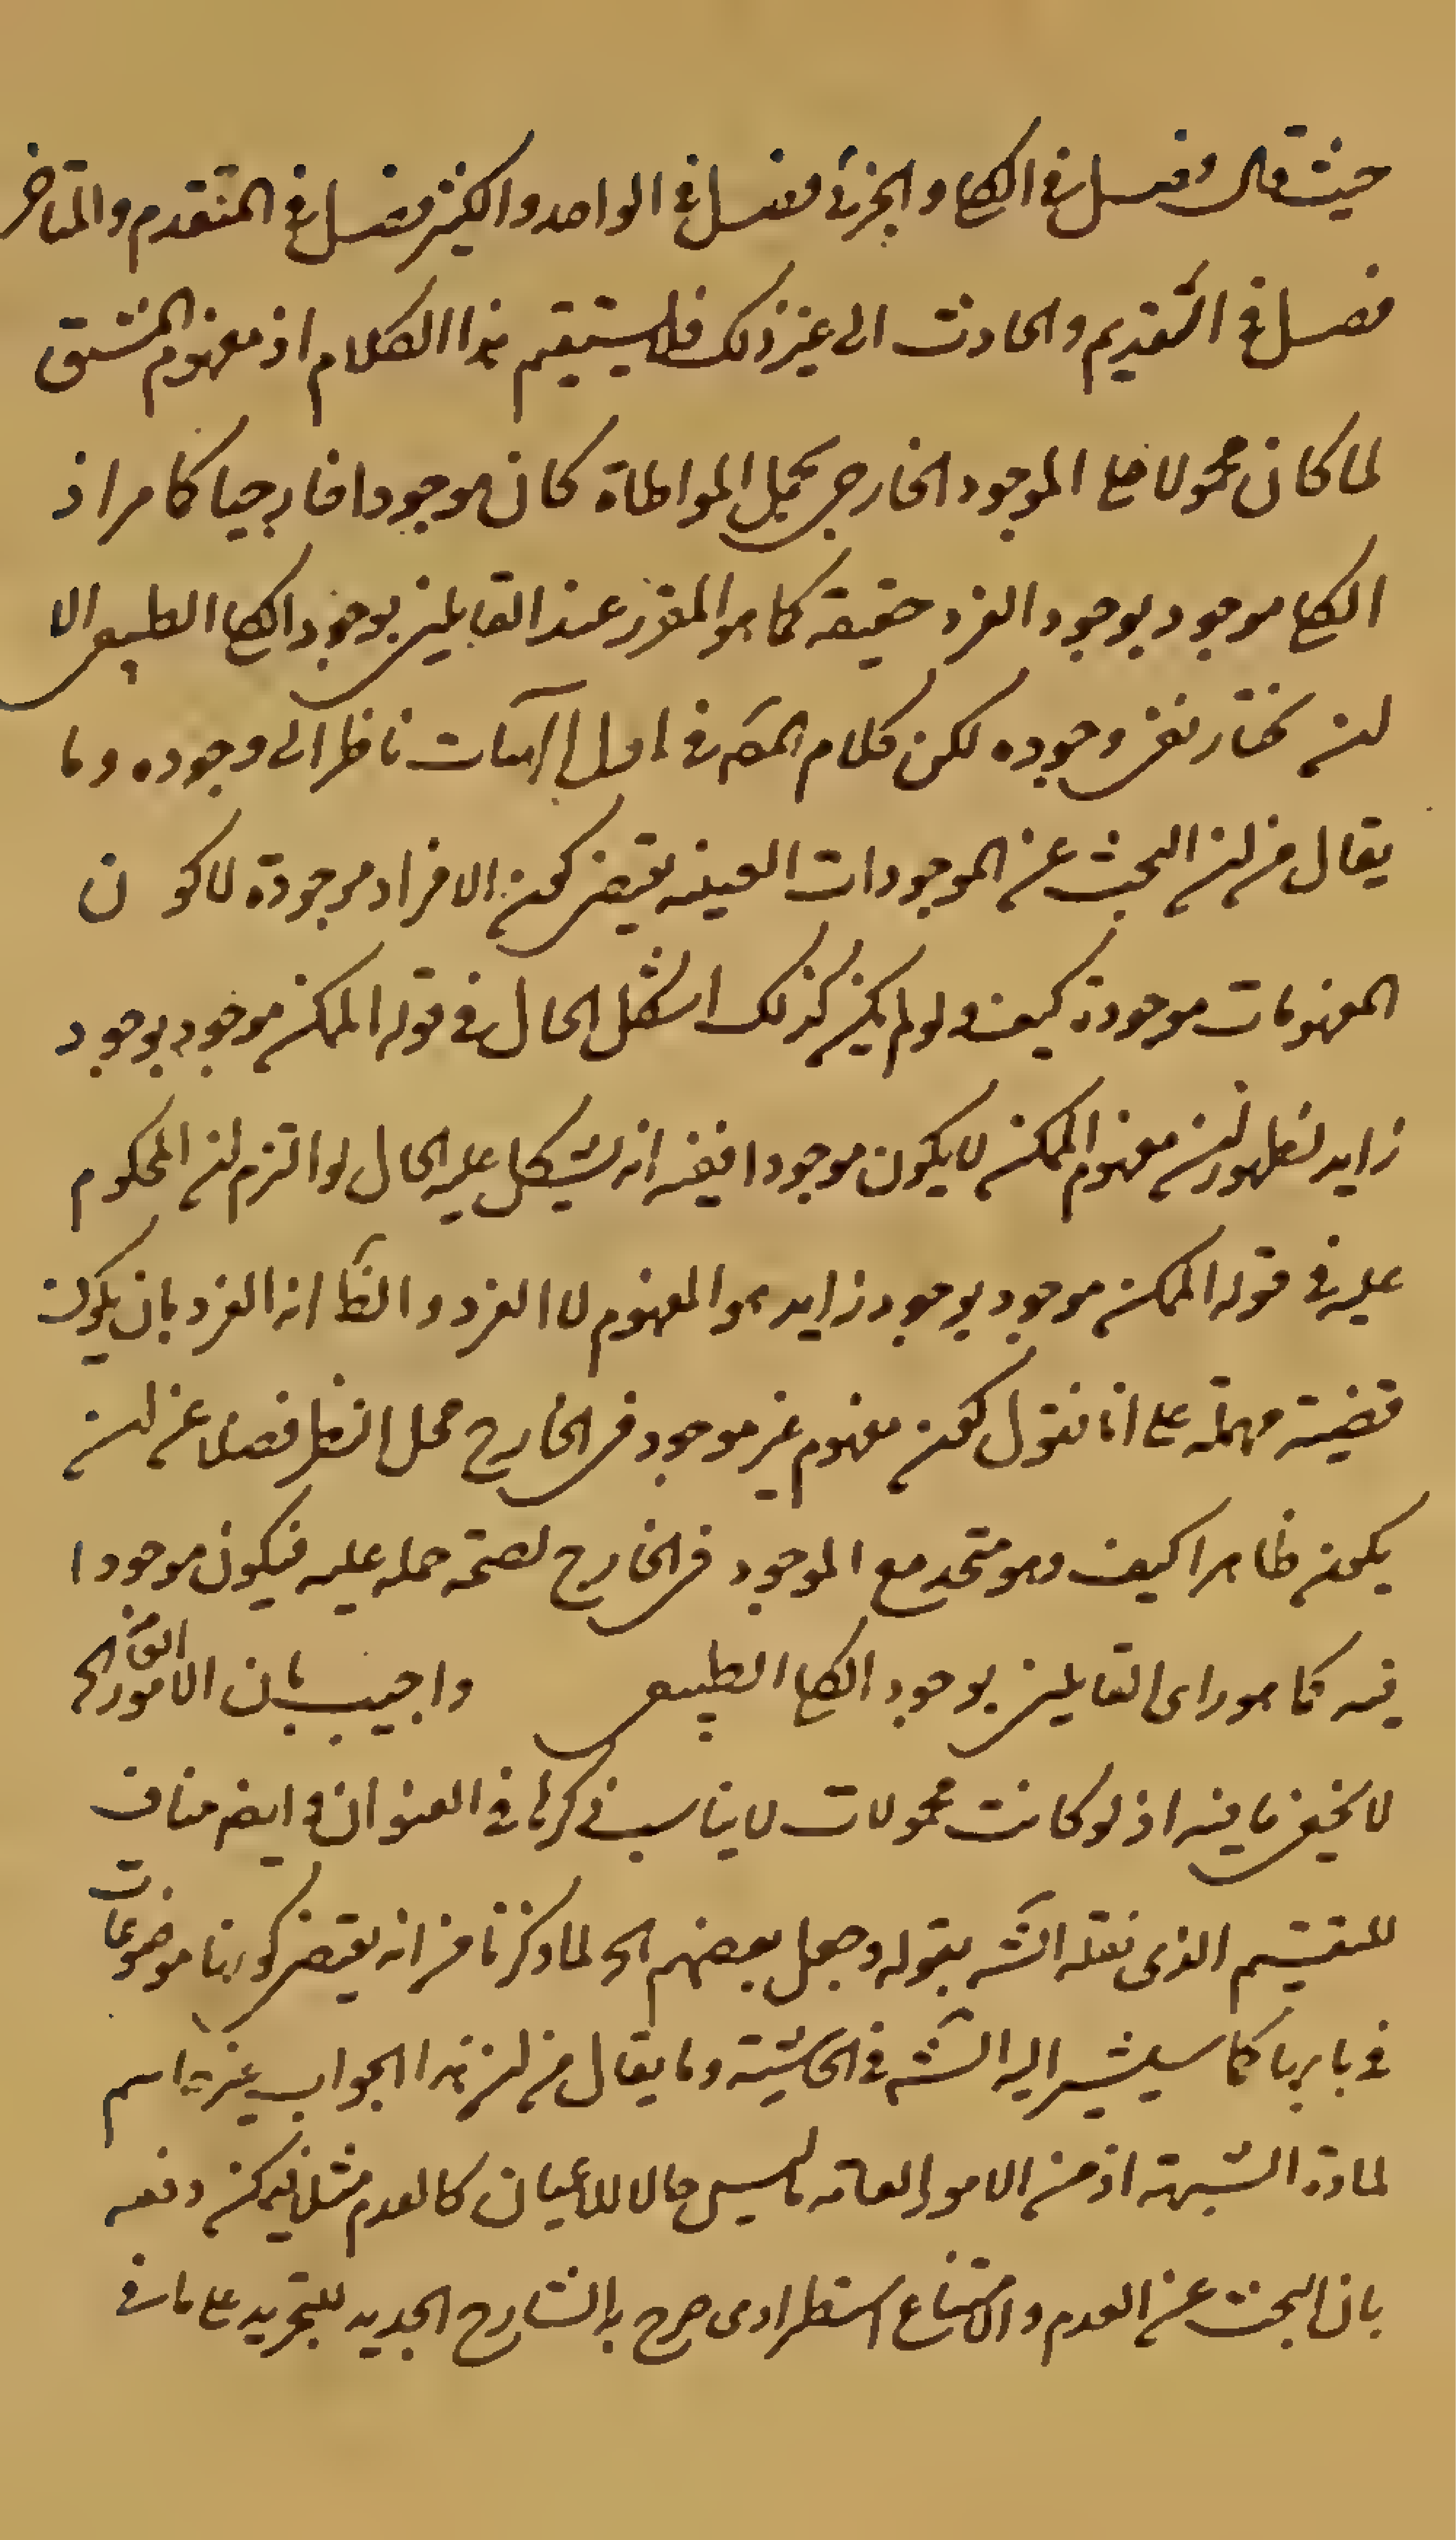 حيث قال فصل في الكلي والجزئي فصل في الواحد والكثير فصل في المتقدم والمتاخر
فصل في القديم والحادث الى غير ذلك فلا يستقيم هذا الكلام اذ مفهوم المشتق
لما كان محمولا على الموجود الخارجي بحمل المواطاة كان موجودا خارجيا كما مر اذ
الكلي موجود بوجود الفرد حقيقة كما هو المقرر عند القايلين بوجود الكلي الطبيعي الا
ان نختار نفي وجوده لكن كلام المص في اول الهيات ناظر الى وجوده وما
يقال من ان البحث عن الموجودات العينيه يقتضي كون الافراد موجودة لا كون
المفهومات موجودة كيف ولو لم يكن كذلك اشكل الحال في قوله الممكن موجود بوجود
زايد لظهور ان مفهوم الممكن لا يكون موجودا ففيه انه يشكل عليه الحال لو التزم ان المحكوم
عليه في قوله الممكن موجود بوجود زايد هو المفهوم لا الفرد والظ انه الفرد بان يكون
قضية مهملة على انا نقول كون مفهوم غير موجود في الخارج محل النظر فضلا عن ان
يكون ظاهرا كيف وهو متحد مع الموجود في الخارج لصحة حمله عليه فيكون موجودا
فيه كما هو راى القايلين بوجود الكلي الطبيعي واجيب بان الامور الخ
لا يخفى ما فيه اذ لو كانت محمولات لا يناسب ذكرها في العنوان وايضا مناف
للتقسيم الذى نقله الش بقوله وجعل بعضهم الخ لما ذكرنا من انه يقتضي كونها موضوعات
في بابها كما سيشير اليه الش في الحاشية وما يقال من ان هذا الجواب غير حاسم
لمادة الشبهة اذ من الامور العامة ما ليس حالا للاعيان كالعدم مثلا فيمكن دفعه
بان البحث عن العدم والامتناع استطرادى صرح به الشارح الجديد للتجريد على ما في